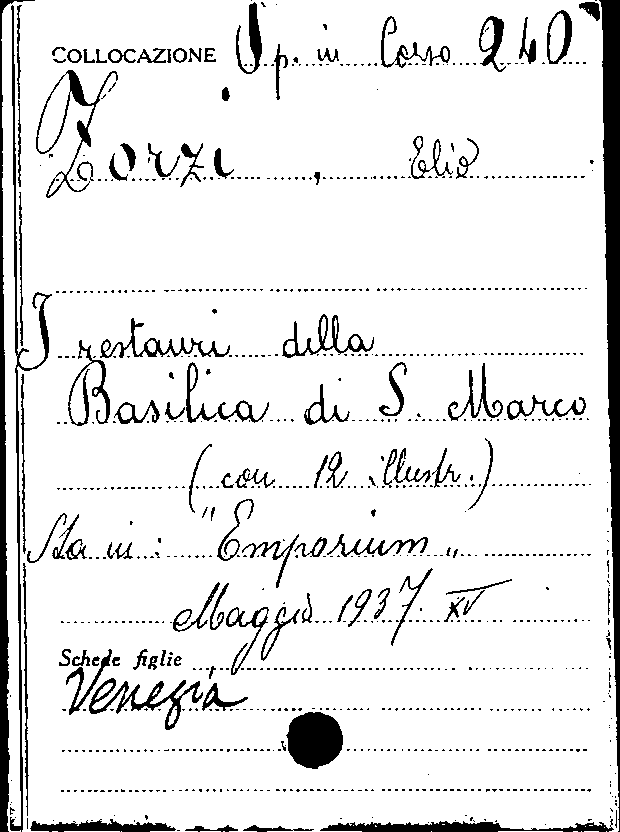 COLLOCAZIONE Op. in Corso 240
Zorzi, Elio
I restauri della
Basilica di S. Marco
(con 12 illustr.)
Sta in: "Emporium"
Maggio 1937. XV
Schede figlie
Venezia